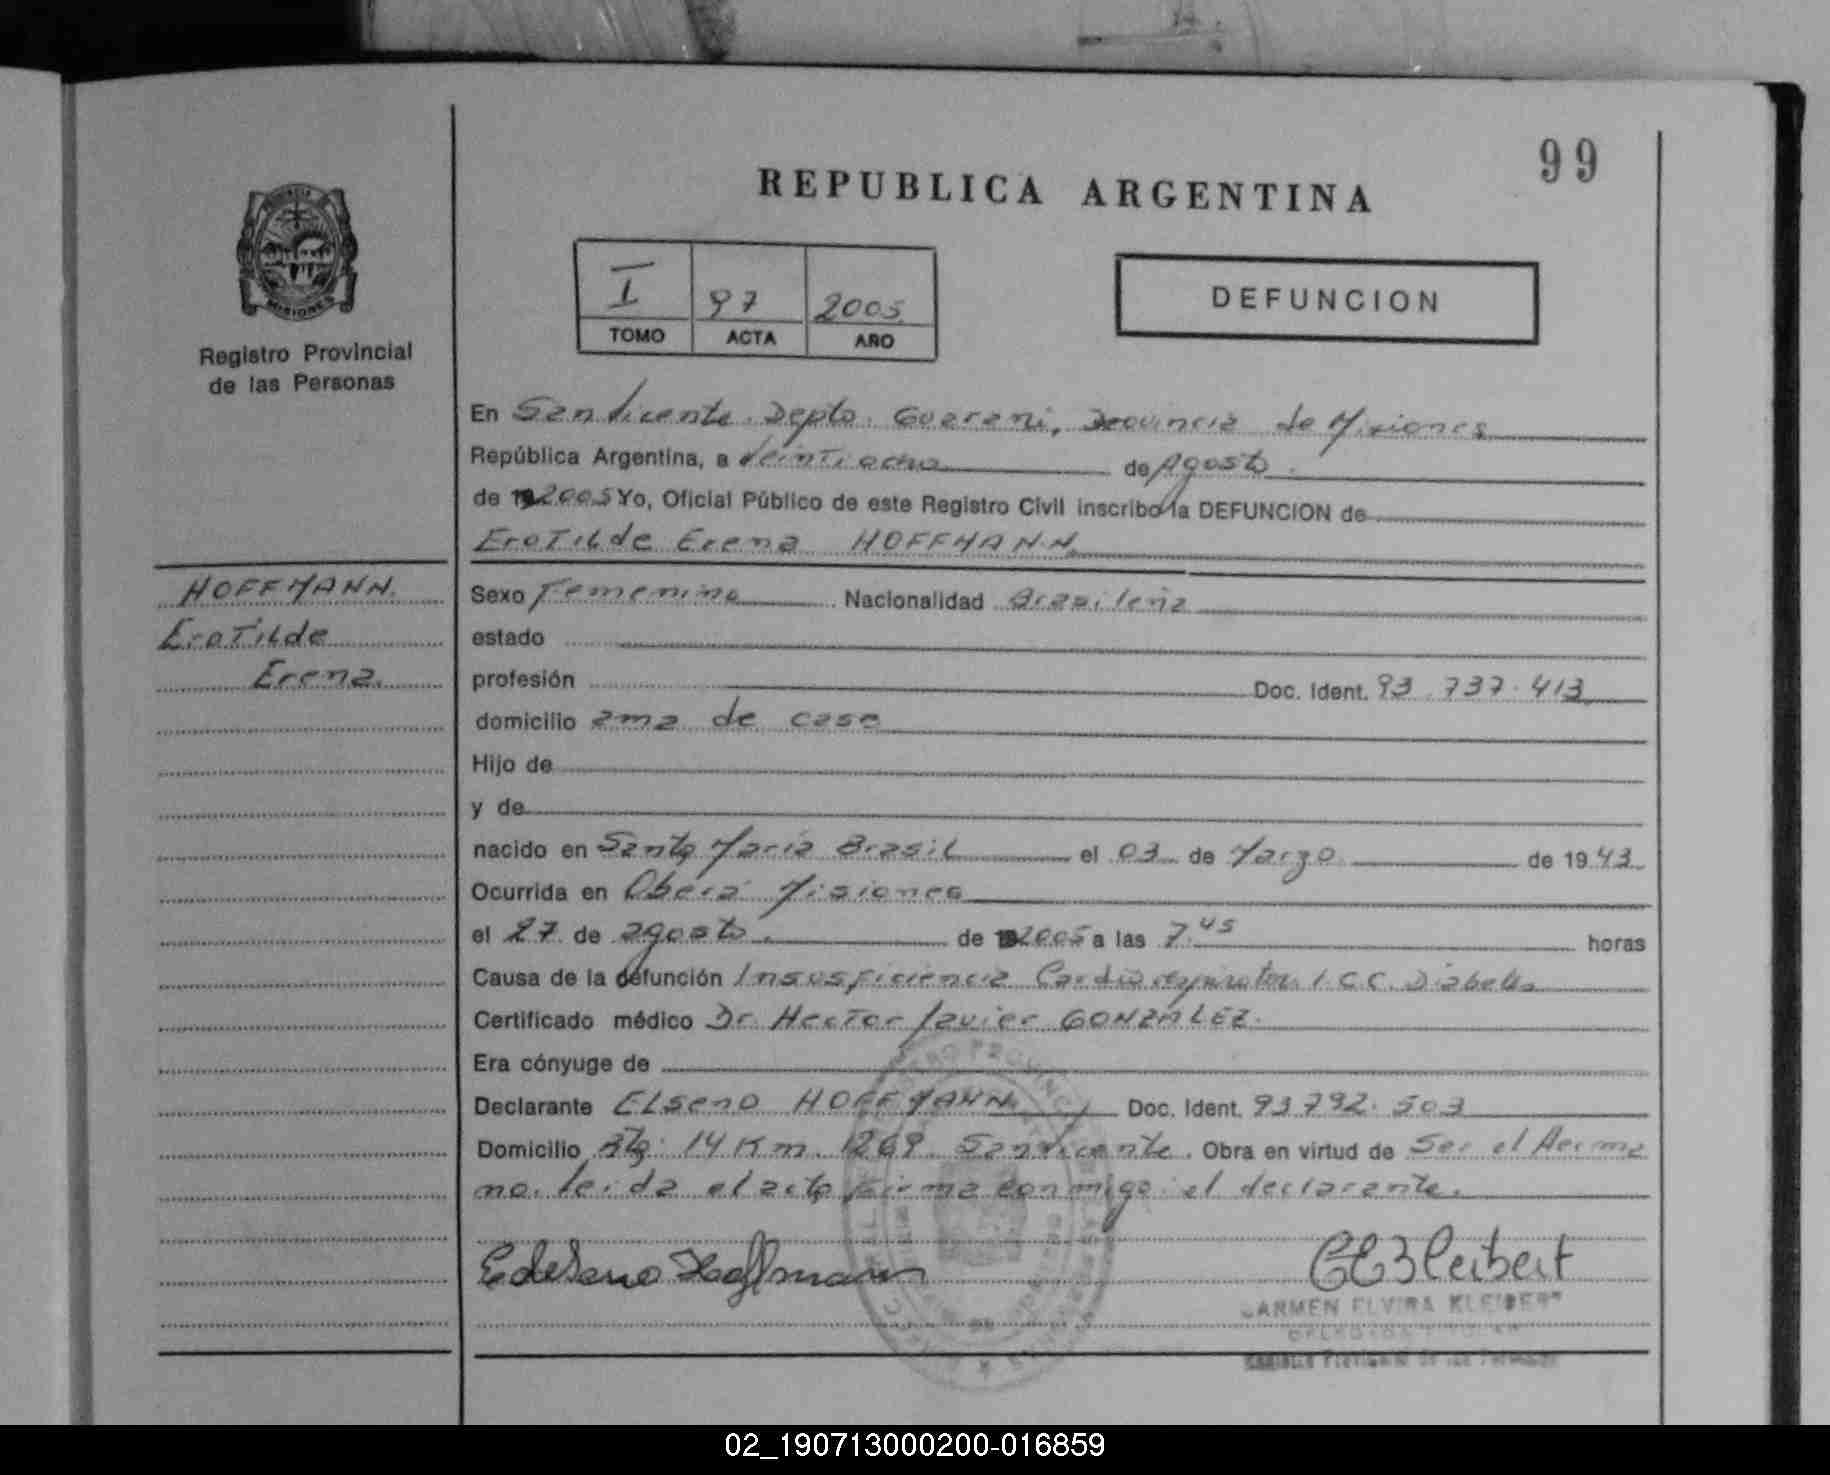 99
REPUBLICA ARGENTINA
PROVINCIA DE
MISIONES
Registro Provincial
de las Personas
I 97 2005
TOMO ACTA AÑO
DEFUNCION
En San Vicente. Depto. Guarani, Provincia de Misiones
República Argentina, a Veintiocho de Agosto.
de 19 2005 Yo, Oficial Público de este Registro Civil inscribo la DEFUNCION de
EroTilde Erena HOFFMANN
HOFFMANN.
EroTilde
Erena.
Sexo Femenino Nacionalidad Brasileña
estado
profesión Doc. Ident. 93.737.413
domicilio ama de casa
Hijo de
y de
nacido en Santa Maria Brasil el 03 de Marzo de 1943
Ocurrida en Oberá Misiones
el 27 de agosto. de 19 2005 a las 7.45 horas
Causa de la defunción Insuficiencia Cardio respirator. I.C.C. Diabetes
Certificado médico Dr. Hector Javier GONZALEZ.
Era cónyuge de
Declarante Elseno HOFFMANN Doc. Ident. 93.792.503
Domicilio 14 Km. 1269. San Vicente. Obra en virtud de Ser el Herma
no. leida el acta firma conmigo el declarante.
Hoffmann
CE Kleibert
CARMEN ELVIRA KLEIBERT
DELEGADA TITULAR
Registro Provincial de las Personas
02_190713000200-016859